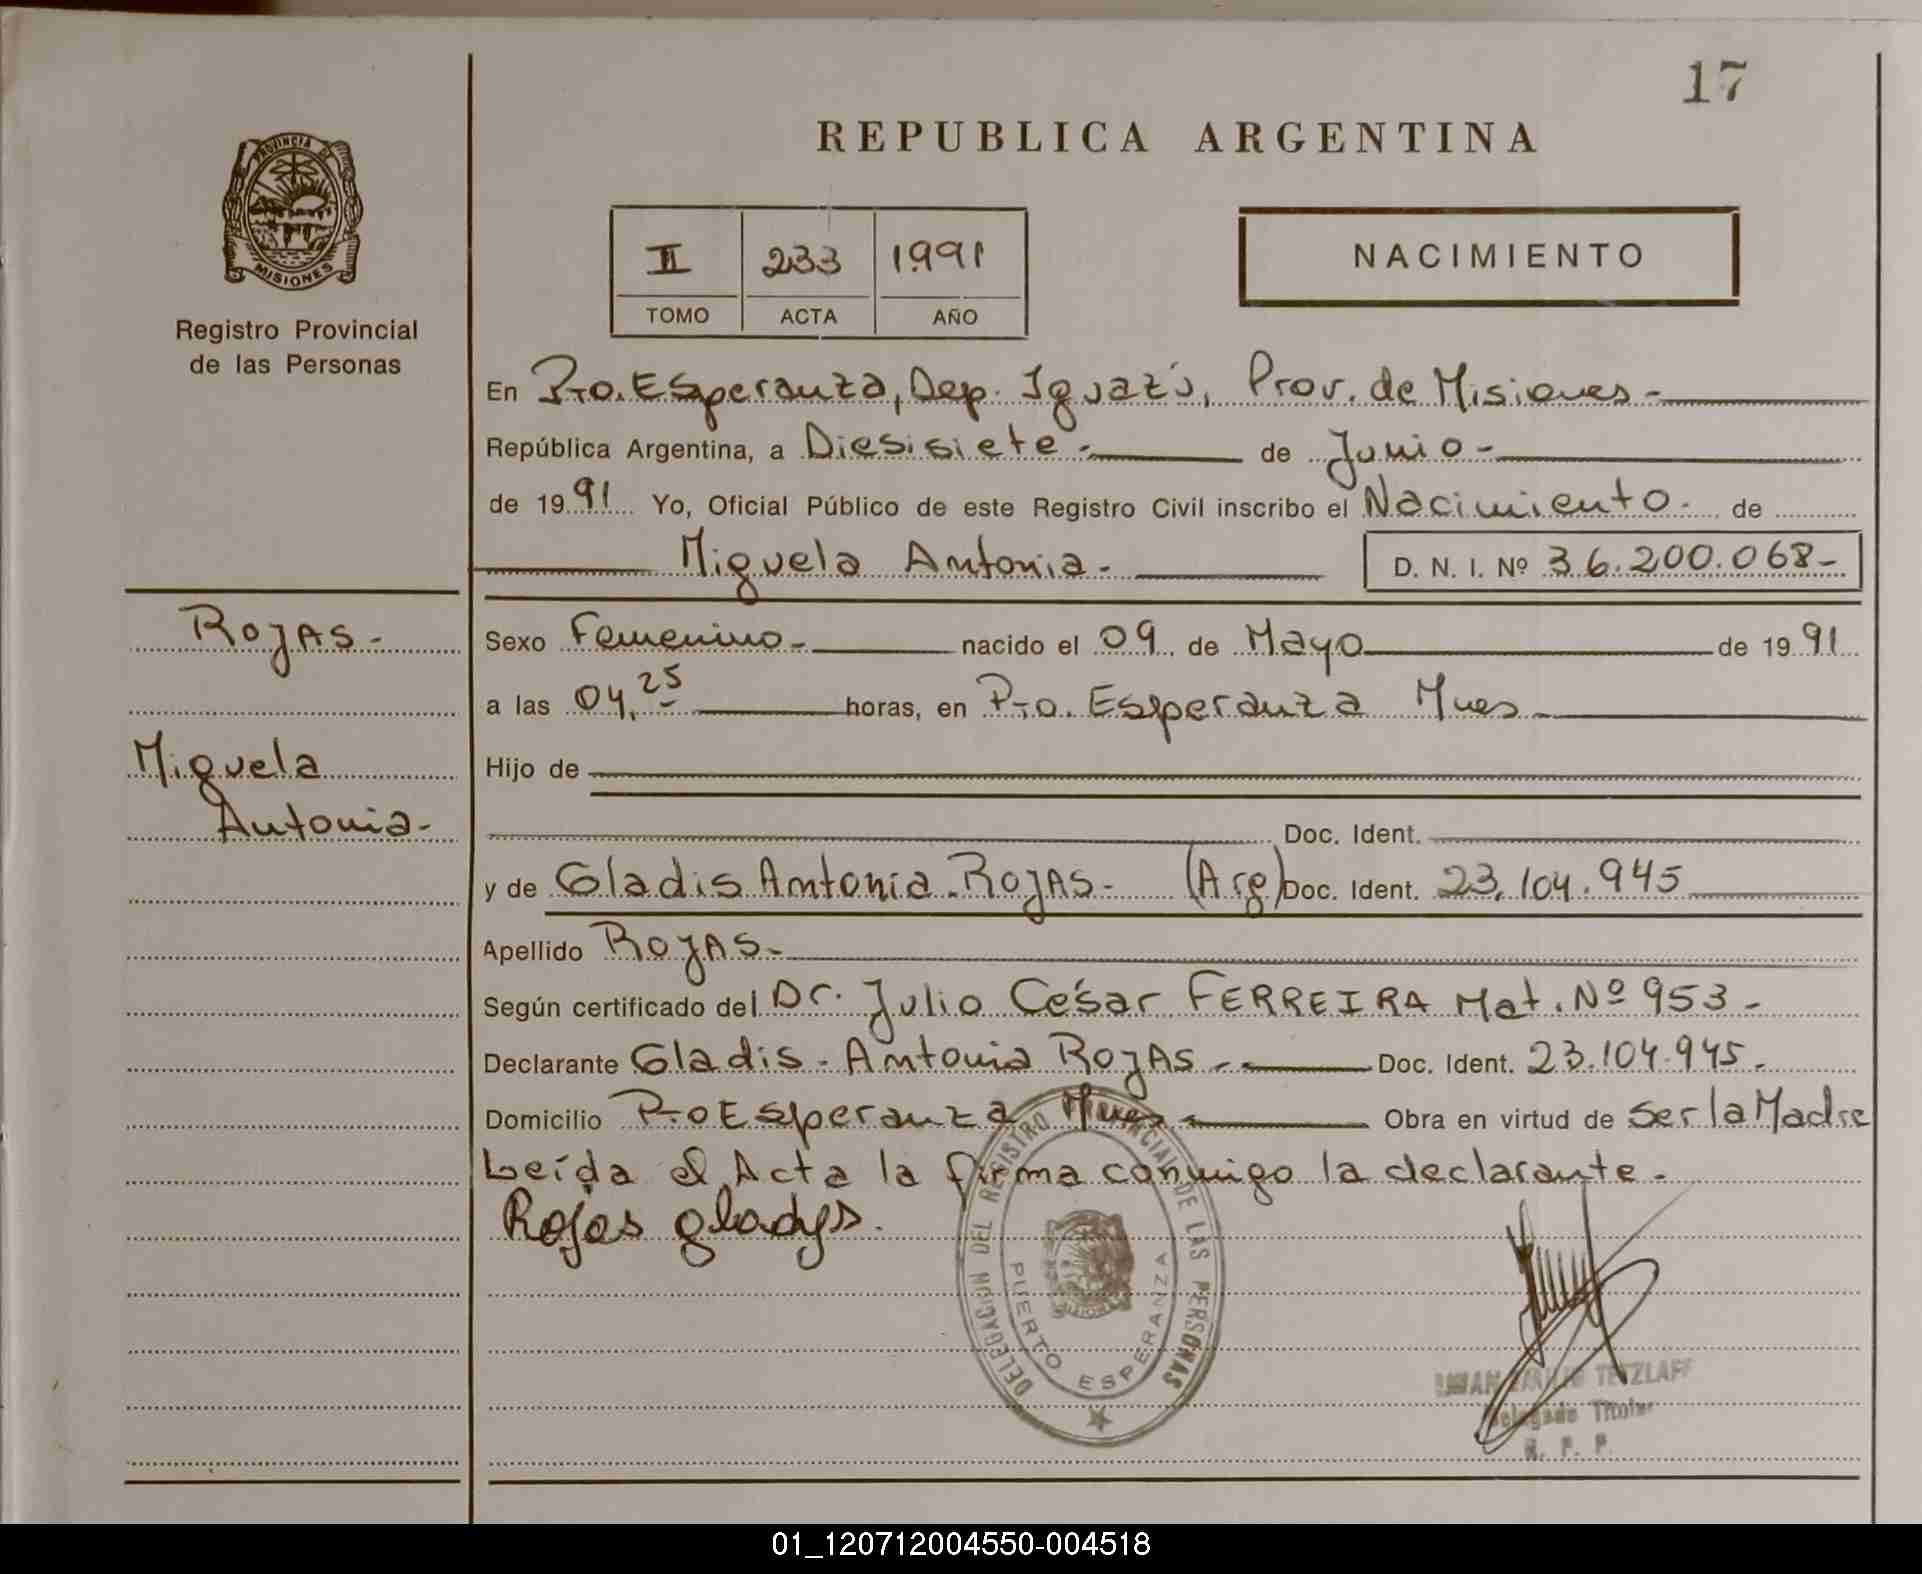 17
REPUBLICA ARGENTINA
PROVINCIA DE
MISIONES
Registro Provincial
de las Personas
II 233 1991
TOMO ACTA AÑO
NACIMIENTO
En Pto. Esperanza, Dep. Iguazú, Prov. de Misiones -
República Argentina, a Diesisiete - de Junio -
de 1991 Yo, Oficial Público de este Registro Civil inscribo el Nacimiento - de
Miguela Antonia - D. N. I. Nº 36.200.068 -
Rojas -
Miguela
Antonia -
Sexo Femenino - nacido el 09 de Mayo de 1991
a las 04,25 horas, en Pto. Esperanza Mnes -
Hijo de
Doc. Ident.
y de Gladis Antonia Rojas - (Arg) Doc. Ident. 23.104.945
Apellido Rojas -
Según certificado del Dr. Julio César FERREIRA Mat. Nº 953 -
Declarante Gladis - Antonia Rojas - Doc. Ident. 23.104.945 -
Domicilio Pto Esperanza Mnes - Obra en virtud de Ser la Madre
Leída el Acta la firma conmigo la declarante -
Rojas gladys.
DELEGACION DEL REGISTRO PROVINCIAL DE LAS PERSONAS
PUERTO ESPERANZA
TETZLAFF
Delegado Titular
R. P. P.
01_120712004550-004518